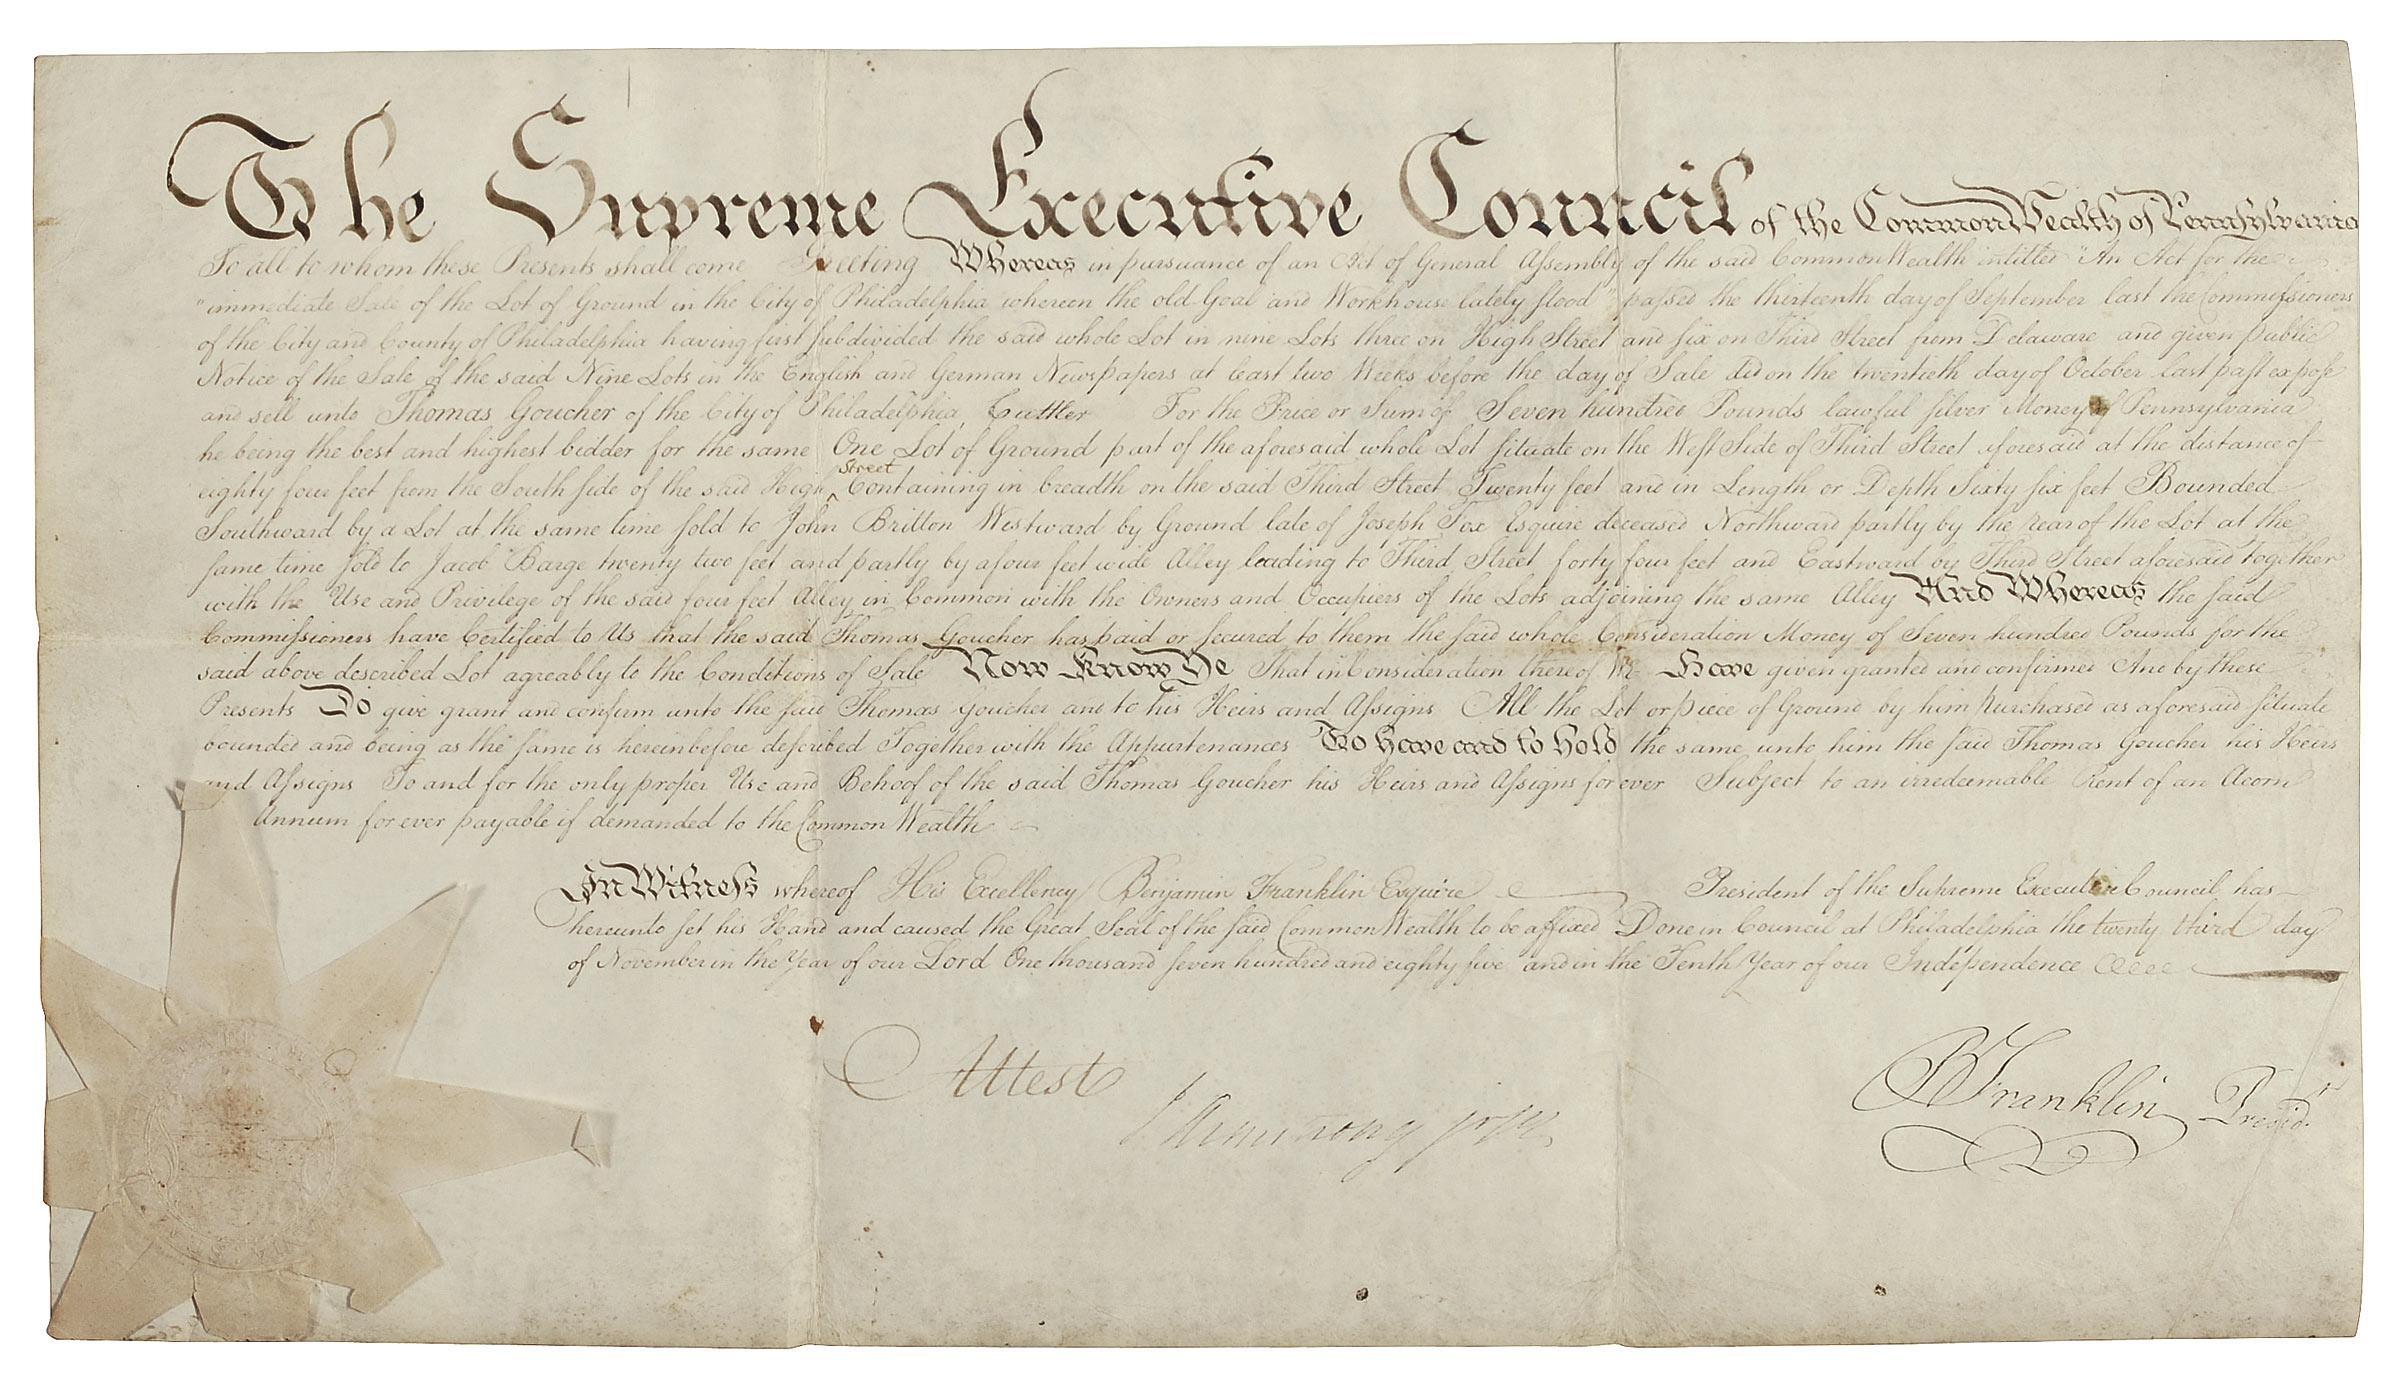 The Supreme Executive Council of the CommonWealth of Pennsylvania
To all to whom these Presents shall come Greeting Whereas in pursuance of an Act of General Assembly of the said CommonWealth intitled "An Act for the
"immediate Sale of the Lot of Ground in the City of Philadelphia whereon the old Goal and Workhouse lately stood" passed the thirteenth day of September last the Commissioners
of the City and County of Philadelphia having first subdivided the said whole Lot in nine Lots three on High Street and six on Third Street from Delaware and given public
Notice of the Sale of the said Nine Lots in the English and German Newspapers at least two Weeks before the day of Sale did on the twentieth day of October last past expose
and sell unto Thomas Goucher of the City of Philadelphia, Cuttler For the Price or Sum of Seven hundred Pounds lawful silver Money of Pennsylvania
he being the best and highest bidder for the same One Lot of Ground part of the aforesaid whole Lot situate on the West Side of Third Street aforesaid at the distance of
eighty four feet from the South side of the said High Street Containing in breadth on the said Third Street Twenty feet and in Length or Depth Sixty six feet Bounded
Southward by a Lot at the same time sold to John Britton Westward by Ground late of Joseph Fox Esquire deceased Northward partly by the rear of the Lot at the
same time sold to Jacob Barge twenty two feet and partly by a four feet wide Alley leading to Third Street forty four feet and Eastward by Third Street aforesaid Together
with the Use and Privilege of the said four feet Alley in Common with the Owners and Occupiers of the Lots adjoining the same Alley And Whereas the said
Commissioners have Certified to Us that the said Thomas Goucher has paid or secured to them the said whole Consideration Money of Seven hundred Pounds for the
said above described Lot agreably to the Conditions of Sale Now Know Ye That in Consideration thereof We Have given granted and confirmed And by these
Presents Do give grant and confirm unto the said Thomas Goucher and to his Heirs and Assigns All the Lot or piece of Ground by him Purchased as aforesaid situate
bounded and being as the same is hereinbefore described Together with the Appurtenances To have and to hold the same unto him the said Thomas Goucher his Heirs
and Assigns To and for the only proper Use and Behoof of the said Thomas Goucher his Heirs and Assigns for ever Subject to an irredeemable Rent of an Acorn
Annum for ever payable if demanded to the CommonWealth
In Witness whereof His Excellency Benjamin Franklin Esquire President of the Supreme Executive Council has
hereunto set his Hand and caused the Great Seal of the said CommonWealth to be affixed Done in Council at Philadelphia the twenty third day
of November in the Year of our Lord One thousand seven hundred and eighty five and in the Tenth Year of our Independence
Attest
J Armstrong jr
B Franklin Presidt.